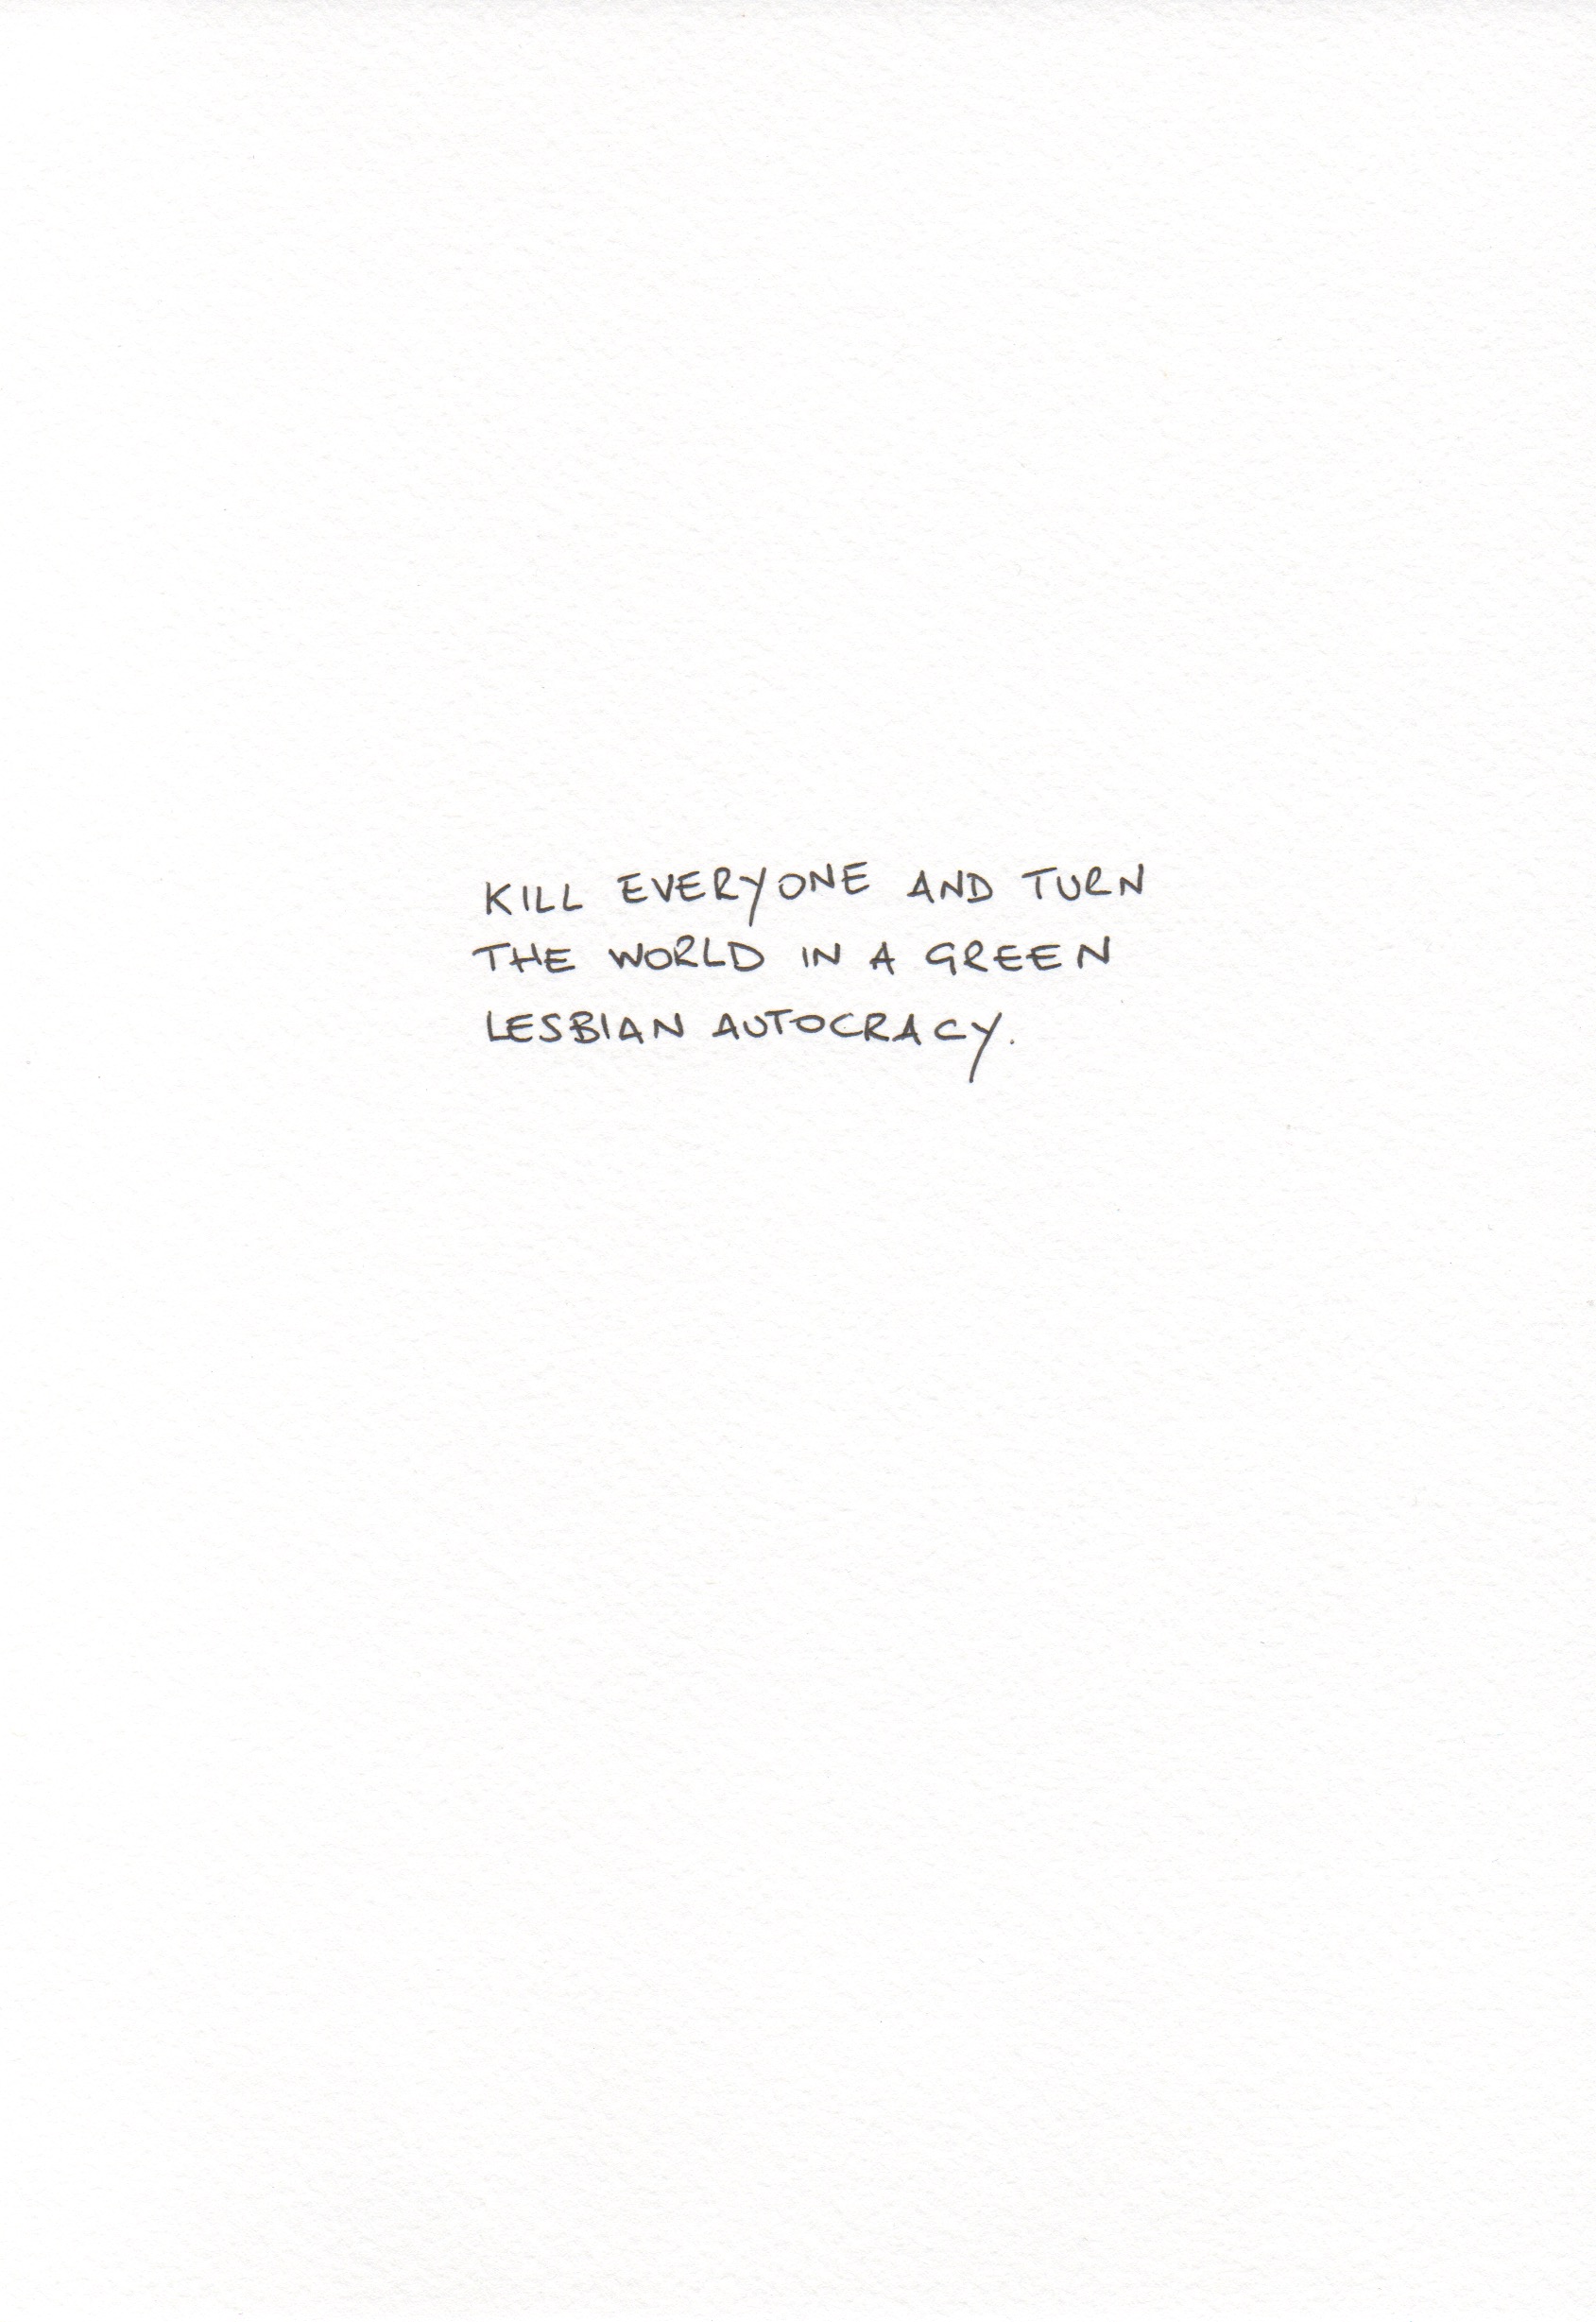 KILL EVERYONE AND TURN
THE WORLD IN A GREEN
LESBIAN AUTOCRACY.